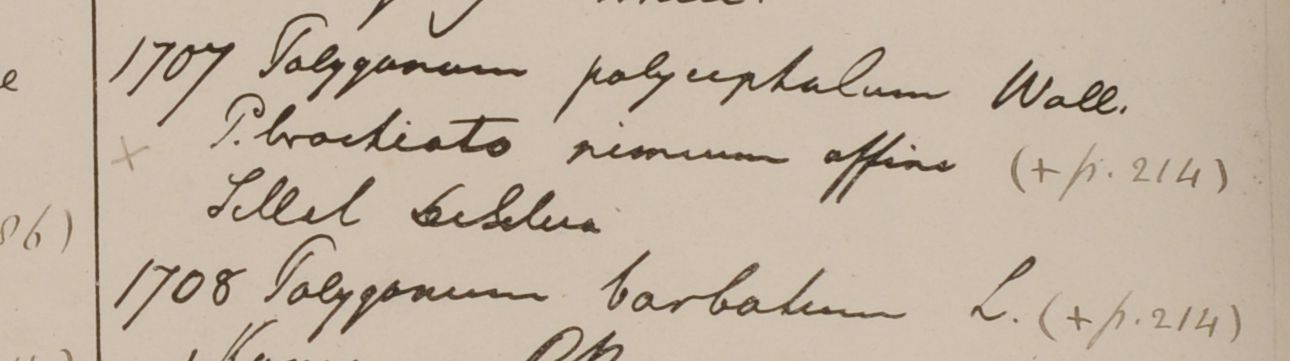 1707 Polygonum polycephalum Wall.
× P. brachiato nimium affine (+ p. 214)
86)
1708 Polygonum barbatum L. (+ p. 214)